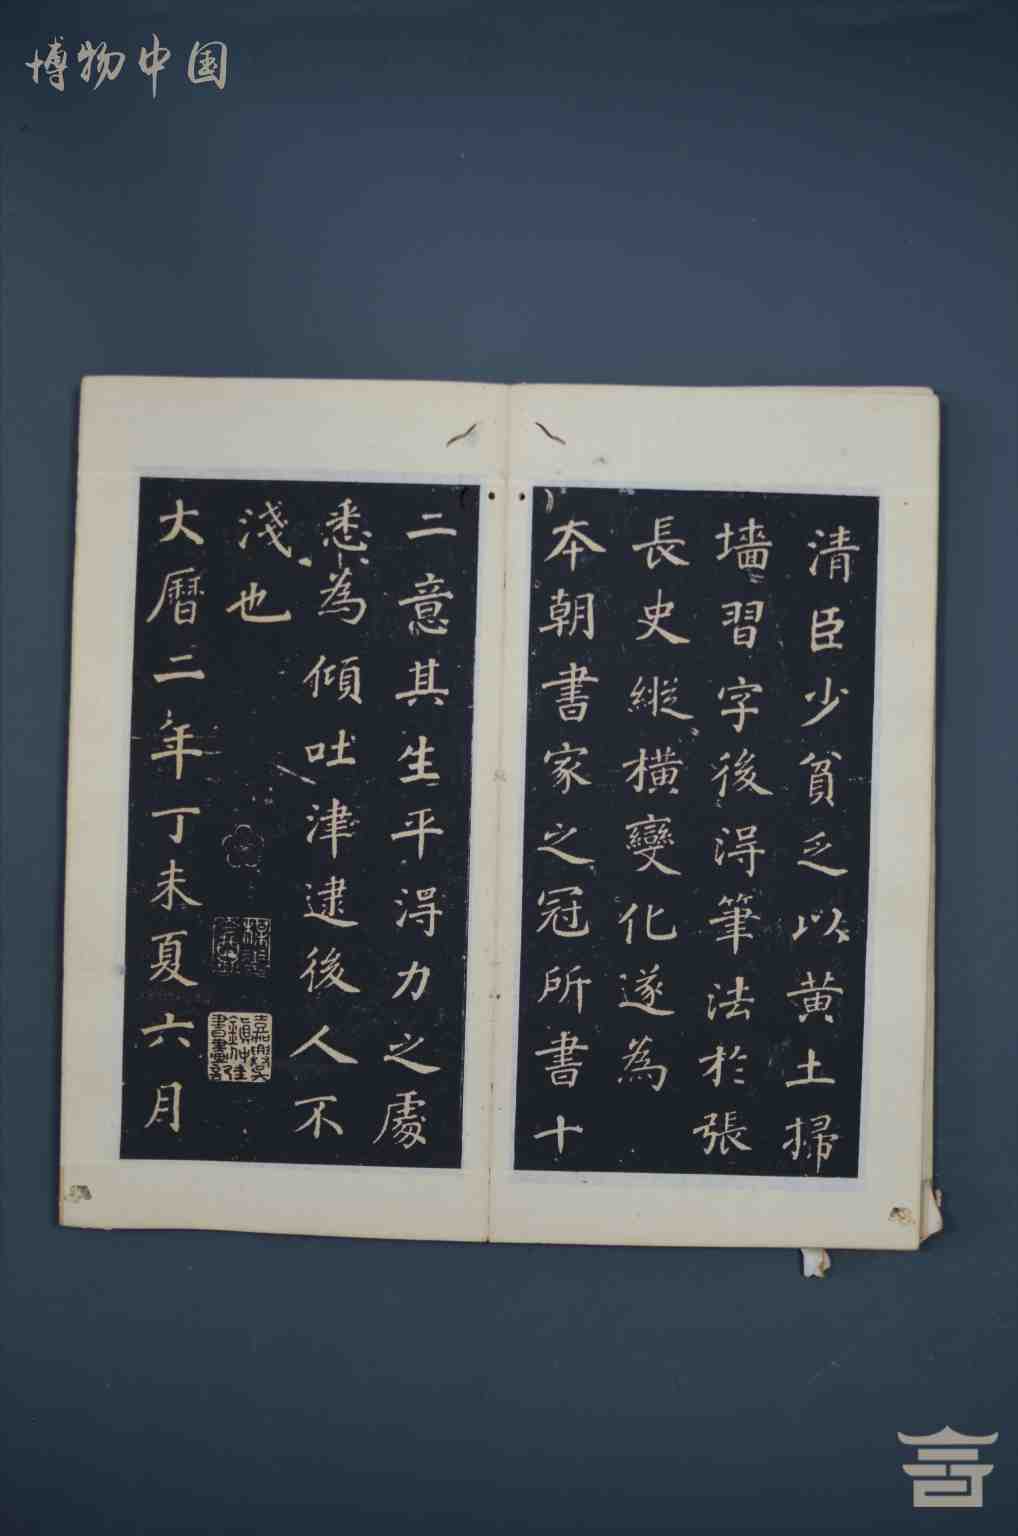 博物中国
清臣少貧乏以黄土掃
墻習字後淂筆法於張
長史縱橫變化遂為
本朝書家之冠所書十
二意其生平淂力之處
悉為傾吐津逮後人不
淺也
大曆二年丁未夏六月